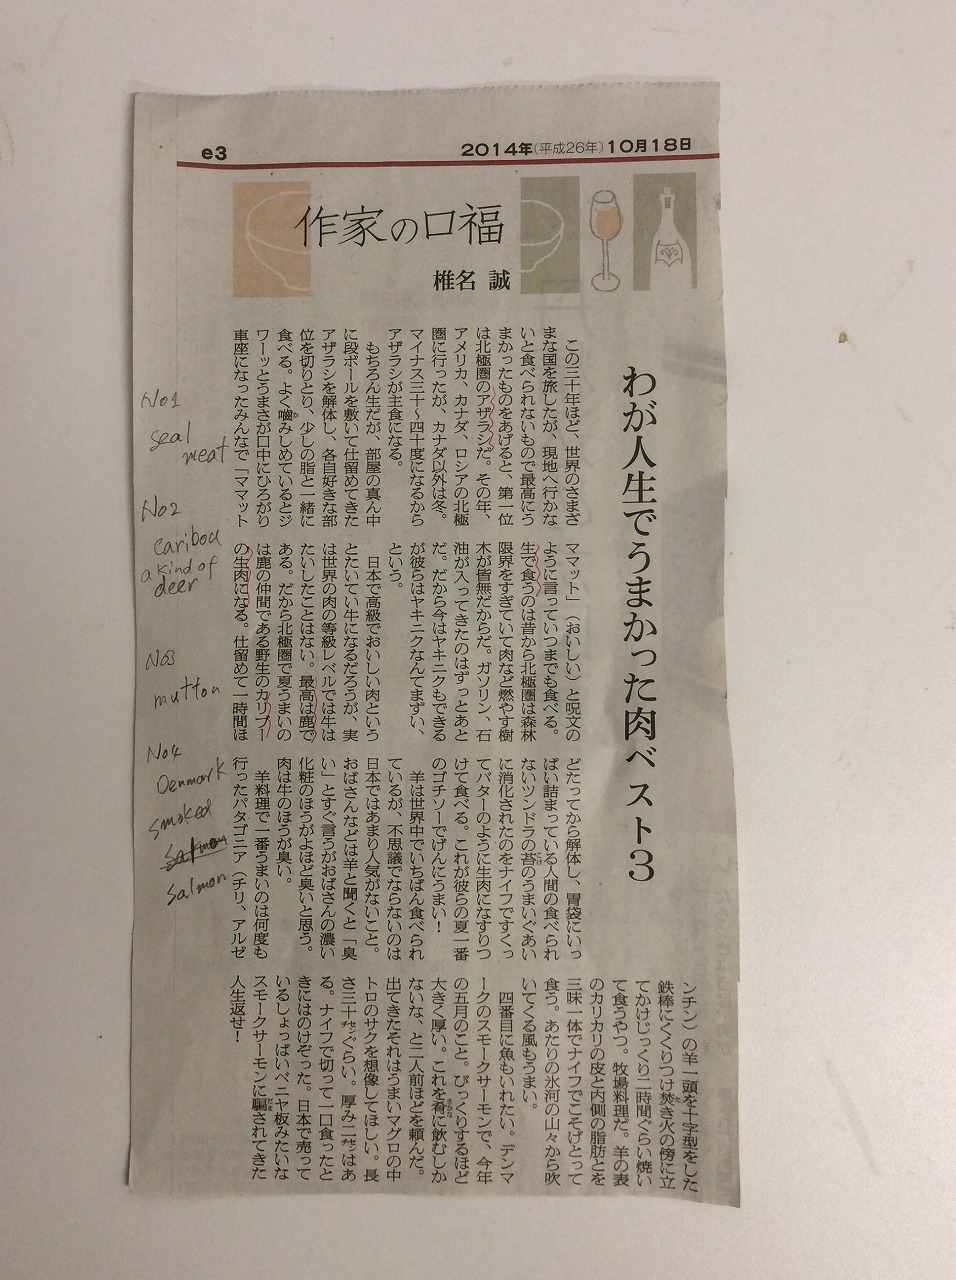 e3
2014年(平成26年)10月18日
作家の口福
椎名 誠
わが人生でうまかった肉ベスト3
この三十年ほど、世界のさまざ
まな国を旅したが、現地へ行かな
いと食べられないもので最高にう
まかったものをあげると、第一位
は北極圏のアザラシだ。その年、
アメリカ、カナダ、ロシアの北極
圏に行ったが、カナダ以外は冬。
マイナス三十〜四十度になるから
アザラシが主食になる。
もちろん生だが、部屋の真ん中
に段ボールを敷いて仕留めてきた
アザラシを解体し、各自好きな部
位を切りとり、少しの脂と一緒に
食べる。よく噛みしめているとジ
ワーッとうまさが口中にひろがり
車座になったみんなで「ママット
ママット」(おいしい)と呪文の
ように言っていつまでも食べる。
生で食うのは昔から北極圏は森林
限界をすぎていて肉など燃やす樹
木が皆無だからだ。ガソリン、石
油が入ってきたのはずっとあと
だ。だから今はヤキニクもできる
が彼らはヤキニクなんてまずい、
という。
日本で高級でおいしい肉という
とたいてい牛になるだろうが、実
は世界の肉の等級レベルでは牛は
たいしたことはない。最高は鹿で
ある。だから北極圏で夏うまいの
は鹿の仲間である野生のカリブー
の生肉になる。仕留めて一時間ほ
どたってから解体し、胃袋にいっ
ぱい詰まっている人間の食べられ
ないツンドラの苔のうまいぐあい
に消化されたのをナイフですくっ
てバターのように生肉になすりつ
けて食べる。これが彼らの夏一番
のゴチソーでげんにうまい!
羊は世界中でいちばん食べられ
ているが、不思議でならないのは
日本ではあまり人気がないこと。
おばさんなどは羊と聞くと「臭
い」とすぐ言うがおばさんの濃い
化粧のほうがよほど臭いと思う。
肉は牛のほうが臭い。
羊料理で一番うまいのは何度も
行ったパタゴニア(チリ、アルゼ
ンチン)の羊一頭を十字型をした
鉄棒にくくりつけ焚き火の傍に立
てかけじっくり二時間ぐらい焼い
て食うやつ。牧場料理だ。羊の表
のカリカリの皮と内側の脂肪とを
三味一体でナイフでこそげとって
食う。あたりの氷河の山々から吹
いてくる風もうまい。
四番目に魚もいれたい。デンマ
ークのスモークサーモンで、今年
の五月のこと。びっくりするほど
大きく厚い。これを肴に飲むしか
ないな、と二人前ほどを頼んだ。
出てきたそれはうまいマグロの中
トロのサクを想像してほしい。長
さ三十センぐらい。厚み二センはあ
る。ナイフで切って一口食ったと
きにはのけぞった。日本で売って
いるしょっぱいベニヤ板みたいな
スモークサーモンに騙されてきた
人生返せ!
No1
seal
meat
No2
caribou
a kind of
deer
No3
mutton
No4
Denmark
smoked
salmon